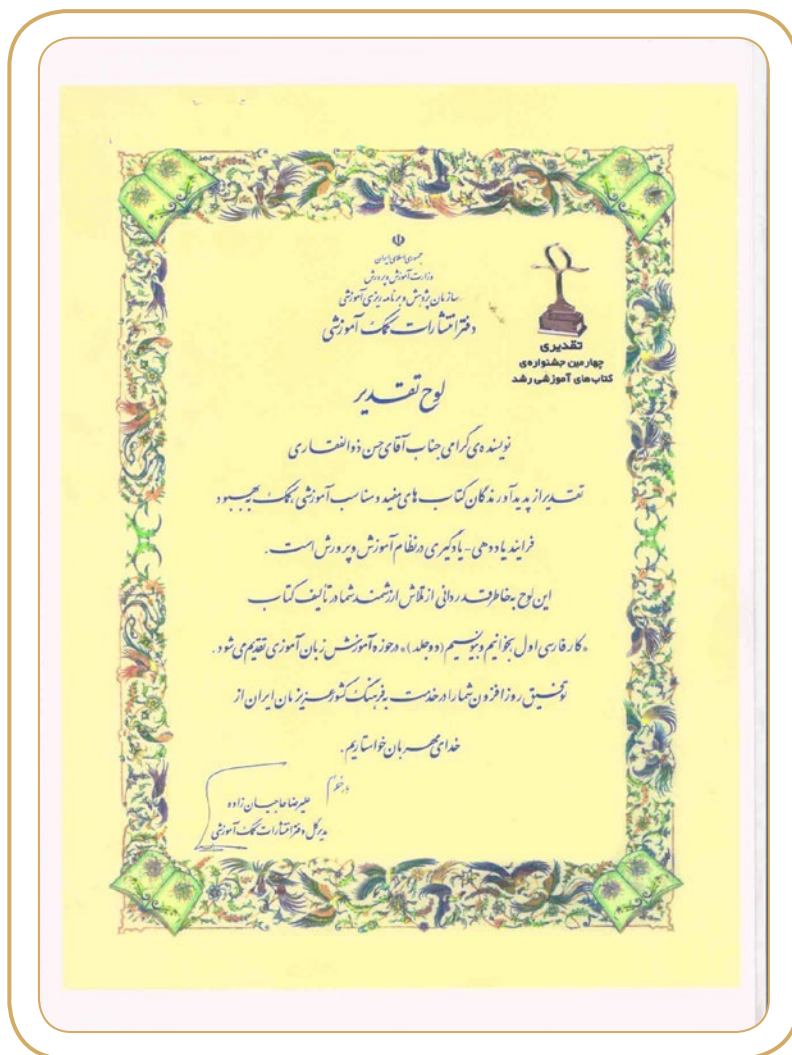 جمهوری اسلامی ایران
وزارت آموزش و پرورش
سازمان پژوهش و برنامه ریزی آموزشی
دفتر انتشارات کمک آموزشی
تقدیری
چهارمین جشنواره‌ی
کتاب‌های آموزشی رشد
لوح تقدیر
نویسنده‌ی گرامی جناب آقای حسن ذوالفقاری
تقدیر از پدیدآورندگان کتاب‌های مفید و مناسب آموزشی، کمک به بهبود
فرایند یاددهی - یادگیری در نظام آموزش و پرورش است.
این لوح به خاطر قدردانی از تلاش ارزشمند شما در تألیف کتاب
«کار فارسی اول بخوانیم و بنویسیم (دو جلد)» در حوزه آموزش زبان آموزی تقدیم می شود.
توفیق روزافزون شما را در خدمت به فرهنگ کشور عزیزمان ایران از
خدای مهربان خواستاریم.
علیرضا حاجیان زاده
مدیرکل دفتر انتشارات کمک آموزشی